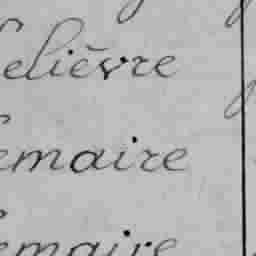 Lelièvre
Lemaire
Lemaire